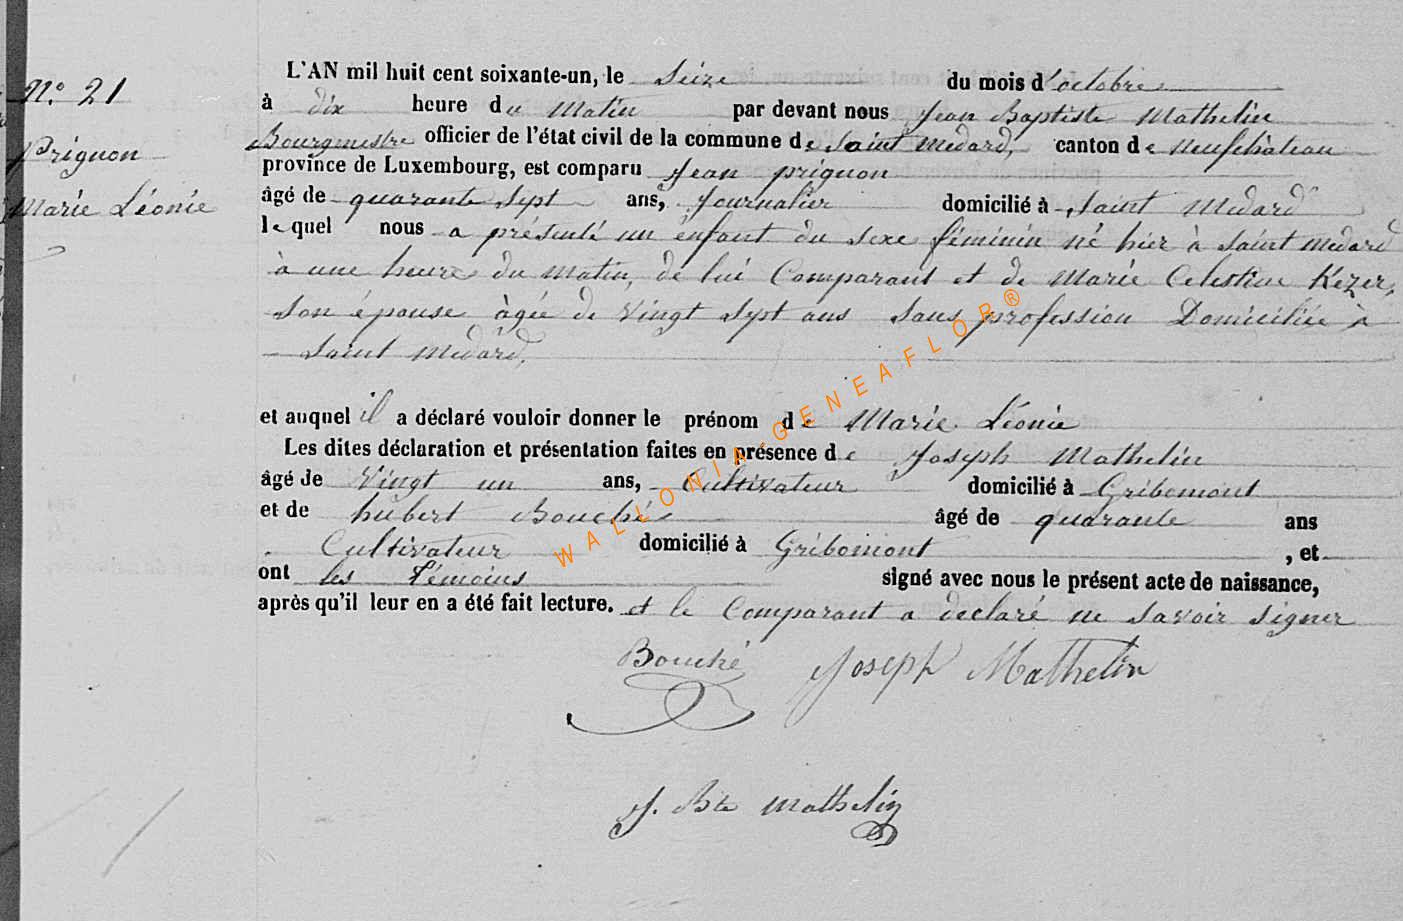 N.° 21
Prignon
Marie Léonie
L'AN mil huit cent soixante-un, le Seize du mois d'octobre
à dix heure du Matin par devant nous Jean Baptiste Mathelin
Bourgmestre officier de l'état civil de la commune de Saint Médard, canton de Neufchâteau
province de Luxembourg, est comparu Jean prignon
âgé de quarante Sept ans, Journalier domicilié à Saint Médard
lequel nous a présenté un énfant du Sexe féminin né hier à Saint Médard
à une heure du Matin, de lui Comparant et de Marie Celestine Kézer,
Son épouse àgée de Vingt Sept ans Sans profession Domiciliée à
Saint Médard,
et auquel il a déclaré vouloir donner le prénom de Marie Léonie
Les dites déclaration et présentation faites en présence de Joseph Mathelin
âgé de Vingt un ans, Cultivateur domicilié à Gribomont
et de hubert Bouché âgé de quarante ans
Cultivateur domicilié à Gribomont , et
ont les Témoins signé avec nous le présent acte de naissance,
après qu'il leur en a été fait lecture. et le Comparant a déclaré ne Savoir Signer
Bouché Joseph Mathelin
J. Bte Mathelin
WALLONIA-GENEAFLOR®